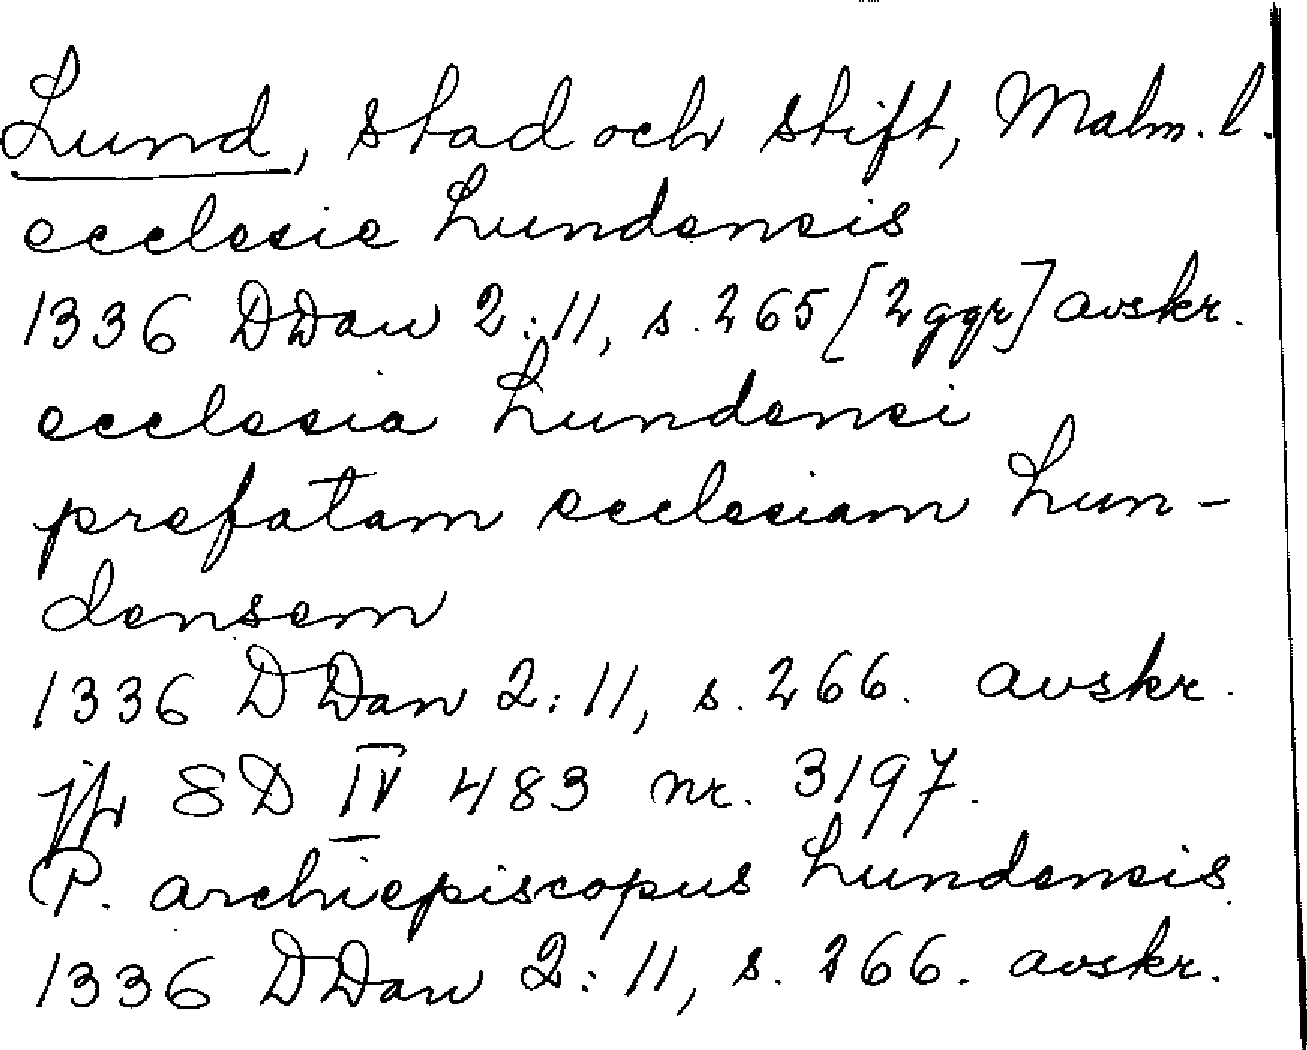 Lund, stad och stift, Malm. l.
ecclesie Lundensis
1336 DDan 2:11, s. 265 [2 ggr] avskr.
ecclesia Lundensi
prefatam ecclesiam Lun-
densem
1336 DDan 2:11, s. 266. avskr.
jfr SD IV 483 nr. 3197.
P. archiepiscopus Lundensis
1336 DDan 2:11, s. 266. avskr.